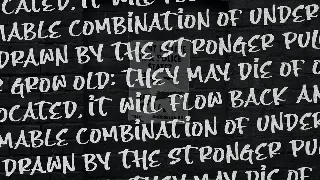 CATED, IT WILL FLOW
MABLE COMBINATION OF UNDER
DRAWN BY THE STRONGER PUL
GROW OLD: THEY MAY DIE OF
OCATED, IT WILL FLOW BACK AN
MABLE COMBINATION OF UNDER
DRAWN BY THE STRONGER PUL
THEY MAY DIE OF